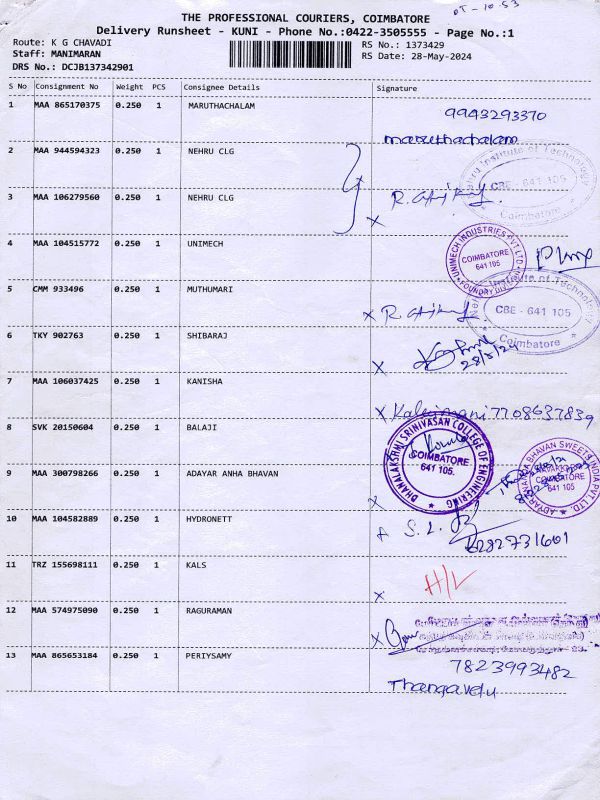 OT - 10.53
THE PROFESSIONAL COURIERS, COIMBATORE
Delivery Runsheet - KUNI - Phone No.:0422-3505555 - Page No.:1
Route: K G CHAVADI
RS No.: 1373429
Staff: MANIMARAN
RS Date: 28-May-2024
DRS No.: DCJB137342901
S No Consignment No Weight PCS Consignee Details Signature
1 MAA 865170375 0.250 1 MARUTHACHALAM
9943293370
maruthachalam
2 MAA 944594323 0.250 1 NEHRU CLG
Institute of Technology
CBE - 641 105
Coimbatore
3 MAA 106279560 0.250 1 NEHRU CLG
x R.
4 MAA 104515772 0.250 1 UNIMECH
UNIMECH INDUSTRIES PVT LTD
COIMBATORE
641 105
FOUNDRY DIV
5 CMM 933496 0.250 1 MUTHUMARI
x R.
Institute of Technology
CBE - 641 105
Coimbatore
6 TKY 902763 0.250 1 SHIBARAJ
x
28/5/24
7 MAA 106037425 0.250 1 KANISHA
x Kalejmani 7708637839
8 SVK 20150604 0.250 1 BALAJI
DHANALAKSHMI SRINIVASAN COLLEGE OF ENGINEERING
COIMBATORE
641 105.
9 MAA 300798266 0.250 1 ADAYAR ANHA BHAVAN
x
ADYAR ANANDHA BHAVAN SWEETS INDIA PVT. LTD.
COIMBATORE
641 105
10 MAA 104582889 0.250 1 HYDRONETT
S. L.
6282731601
11 TRZ 155698111 0.250 1 KALS
x H/L
12 MAA 574975090 0.250 1 RAGURAMAN
x
13 MAA 865653184 0.250 1 PERIYSAMY
7823993482
Thangavelu